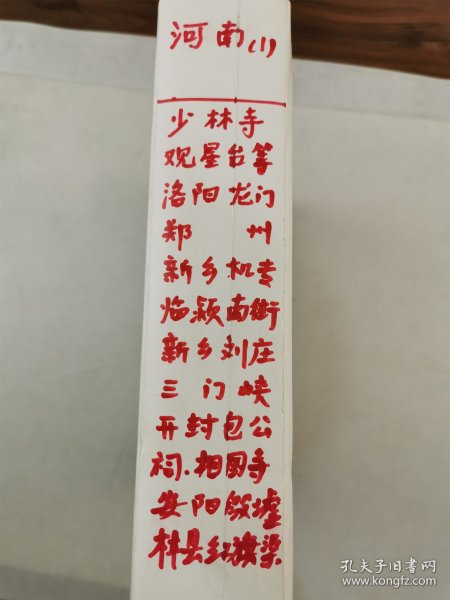 河南(1)
少林寺
观星台等
洛阳龙门
郑州
新乡机专
临颍南街
新乡刘庄
三门峡
开封包公
祠.相国寺
安阳殷墟
林县红旗渠
孔夫子旧书网
www.kongfz.com